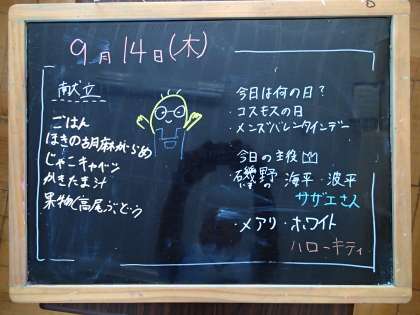 9月14日(木)
献立
ごはん
ほきの胡麻がらめ
じゃこキャベツ
かきたま汁
果物(高尾ぶどう)
今日は何の日?
・コスモスの日
・メンズバレンタインデー
今日の主役
磯野 海平・波平
サザエさん
・メアリ・ホワイト
ハローキティ